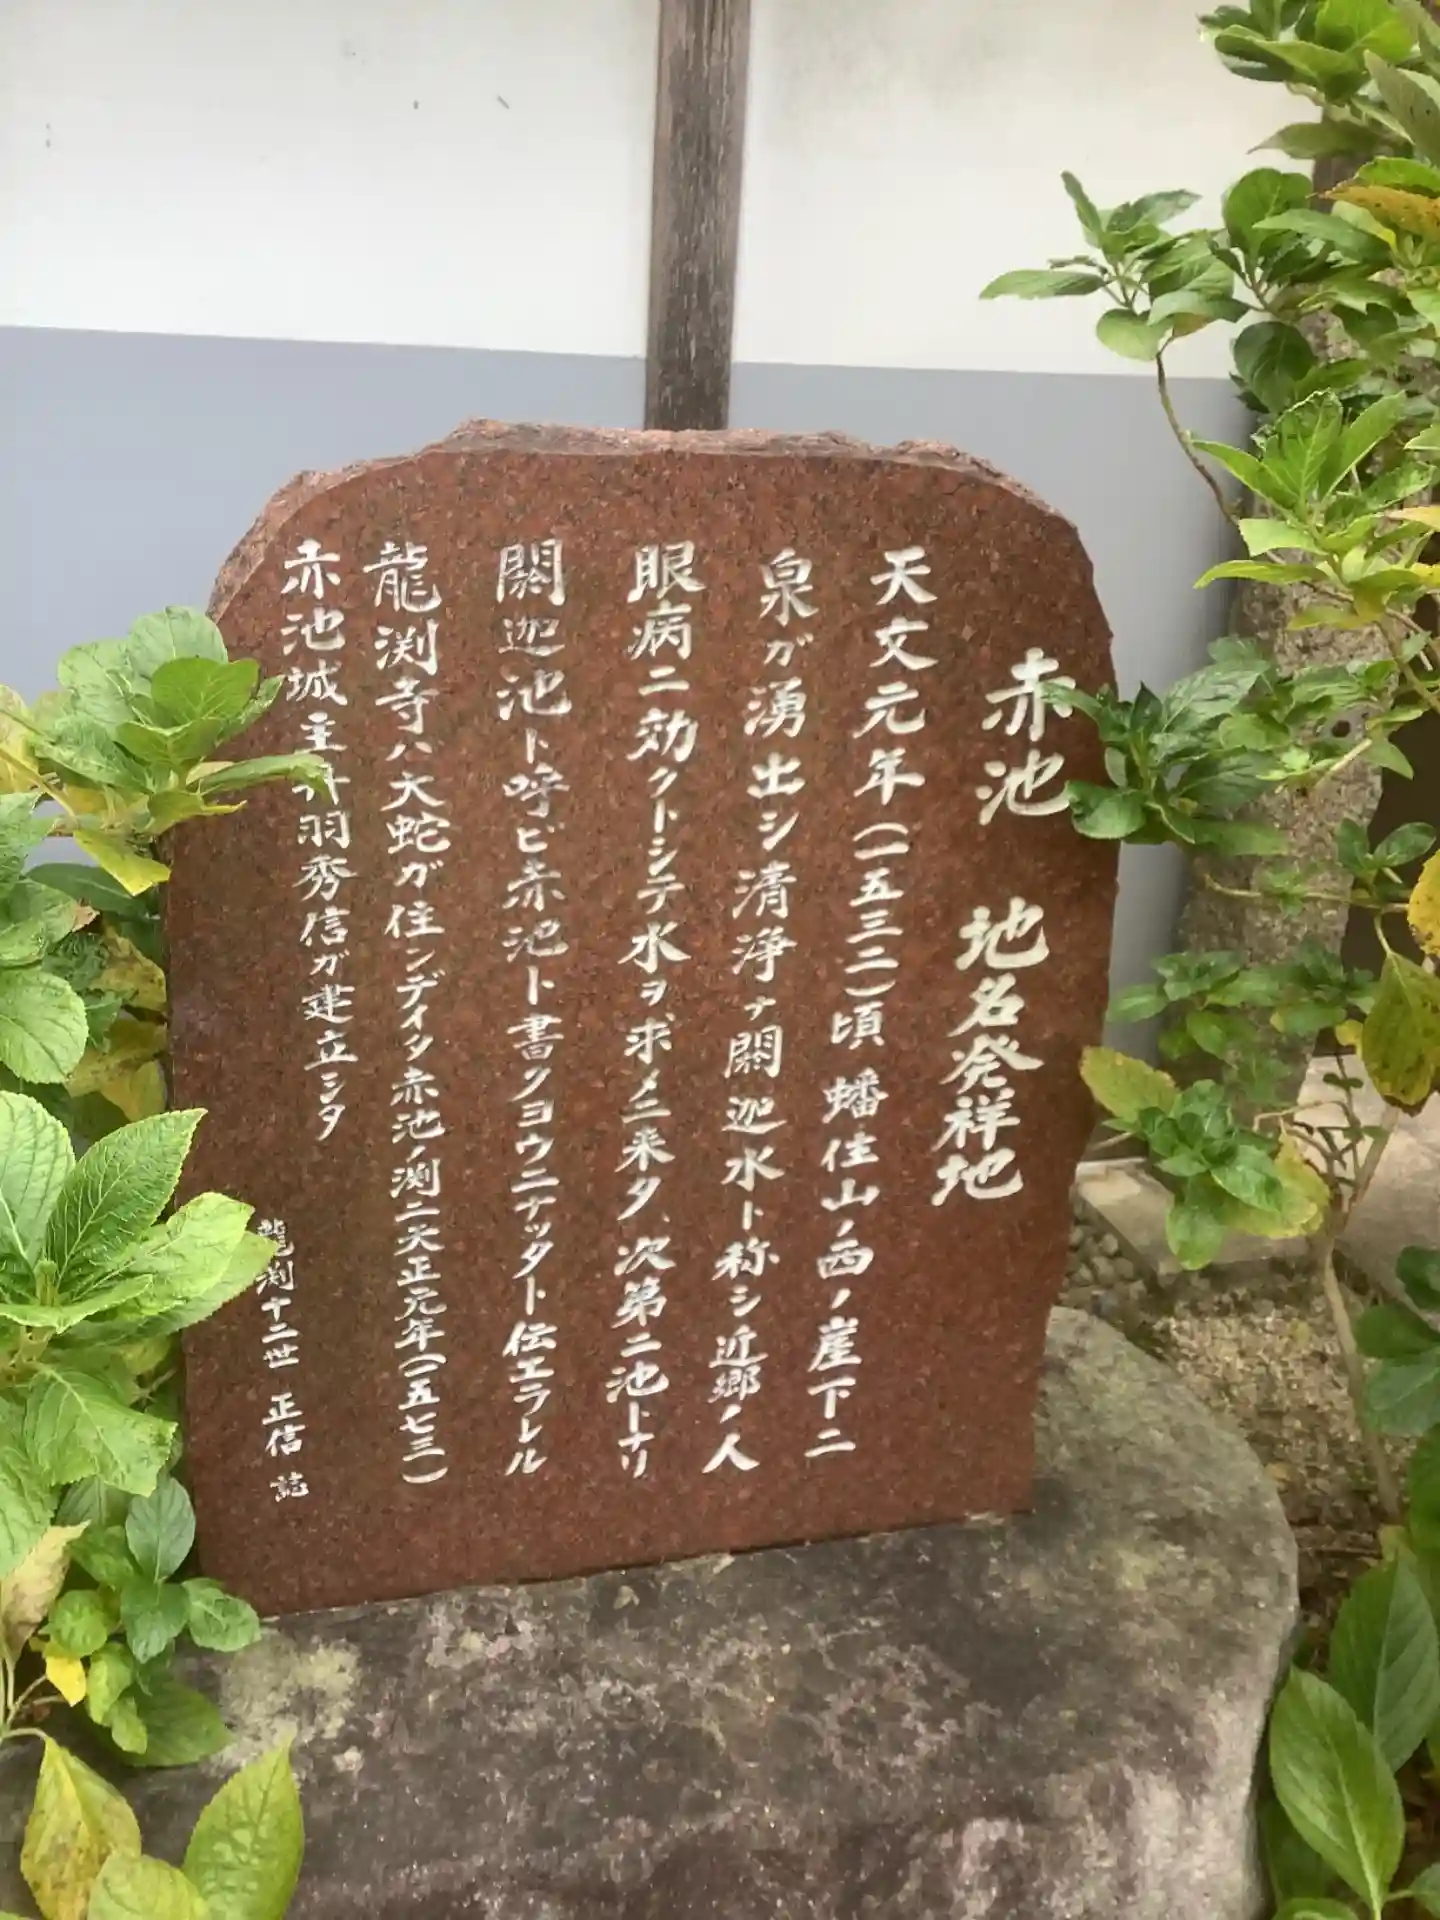 赤池 地名発祥地
天文元年(一五三二)頃 蟠住山ノ西ノ崖下ニ
泉ガ湧出シ清浄ナ閼迦水ト称シ近郷ノ人
眼病ニ効クトシテ水ヲ求メニ来タ、次第ニ池トナリ
閼迦池ト呼ビ赤池ト書クヨウニナッタト伝エラレル
龍渕寺ハ大蛇ガ住ンデイタ赤池ノ渕ニ天正元年(一五七三)
赤池城主丹羽秀信ガ建立シタ
龍渕十二世 正信 誌